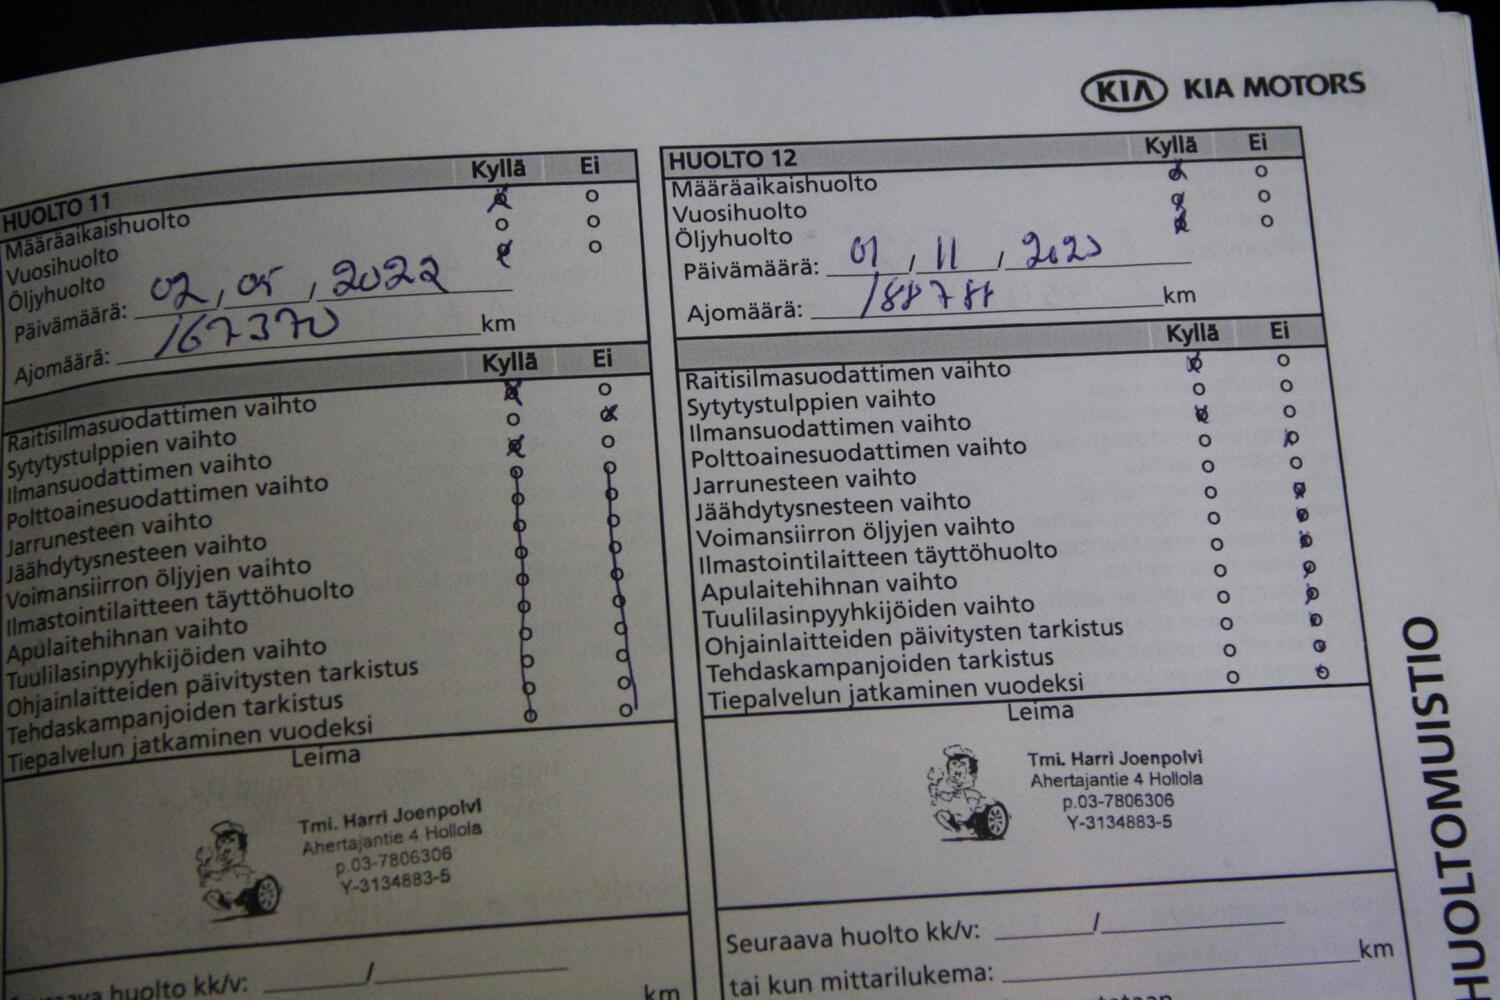 KIA KIA MOTORS
HUOLTO 11 Kyllä Ei
Määräaikaishuolto
Vuosihuolto
Öljyhuolto
Päivämäärä: 02 , 05 , 2022
Ajomäärä: 167370 km
Kyllä Ei
Raitisilmasuodattimen vaihto
Sytytystulppien vaihto
Ilmansuodattimen vaihto
Polttoainesuodattimen vaihto
Jarrunesteen vaihto
Jäähdytysnesteen vaihto
Voimansiirron öljyjen vaihto
Ilmastointilaitteen täyttöhuolto
Apulaitehihnan vaihto
Tuulilasinpyyhkijöiden vaihto
Ohjainlaitteiden päivitysten tarkistus
Tehdaskampanjoiden tarkistus
Tiepalvelun jatkaminen vuodeksi
Leima
Tmi. Harri Joenpolvi
Ahertajantie 4 Hollola
p.03-7806306
Y-3134883-5
huolto kk/v: /
km
HUOLTO 12 Kyllä Ei
Määräaikaishuolto
Vuosihuolto
Öljyhuolto
Päivämäärä: 01 , 11 , 2023
Ajomäärä: 188788 km
Kyllä Ei
Raitisilmasuodattimen vaihto
Sytytystulppien vaihto
Ilmansuodattimen vaihto
Polttoainesuodattimen vaihto
Jarrunesteen vaihto
Jäähdytysnesteen vaihto
Voimansiirron öljyjen vaihto
Ilmastointilaitteen täyttöhuolto
Apulaitehihnan vaihto
Tuulilasinpyyhkijöiden vaihto
Ohjainlaitteiden päivitysten tarkistus
Tehdaskampanjoiden tarkistus
Tiepalvelun jatkaminen vuodeksi
Leima
Tmi. Harri Joenpolvi
Ahertajantie 4 Hollola
p.03-7806306
Y-3134883-5
Seuraava huolto kk/v: /
tai kun mittarilukema: km
HUOLTOMUISTIO